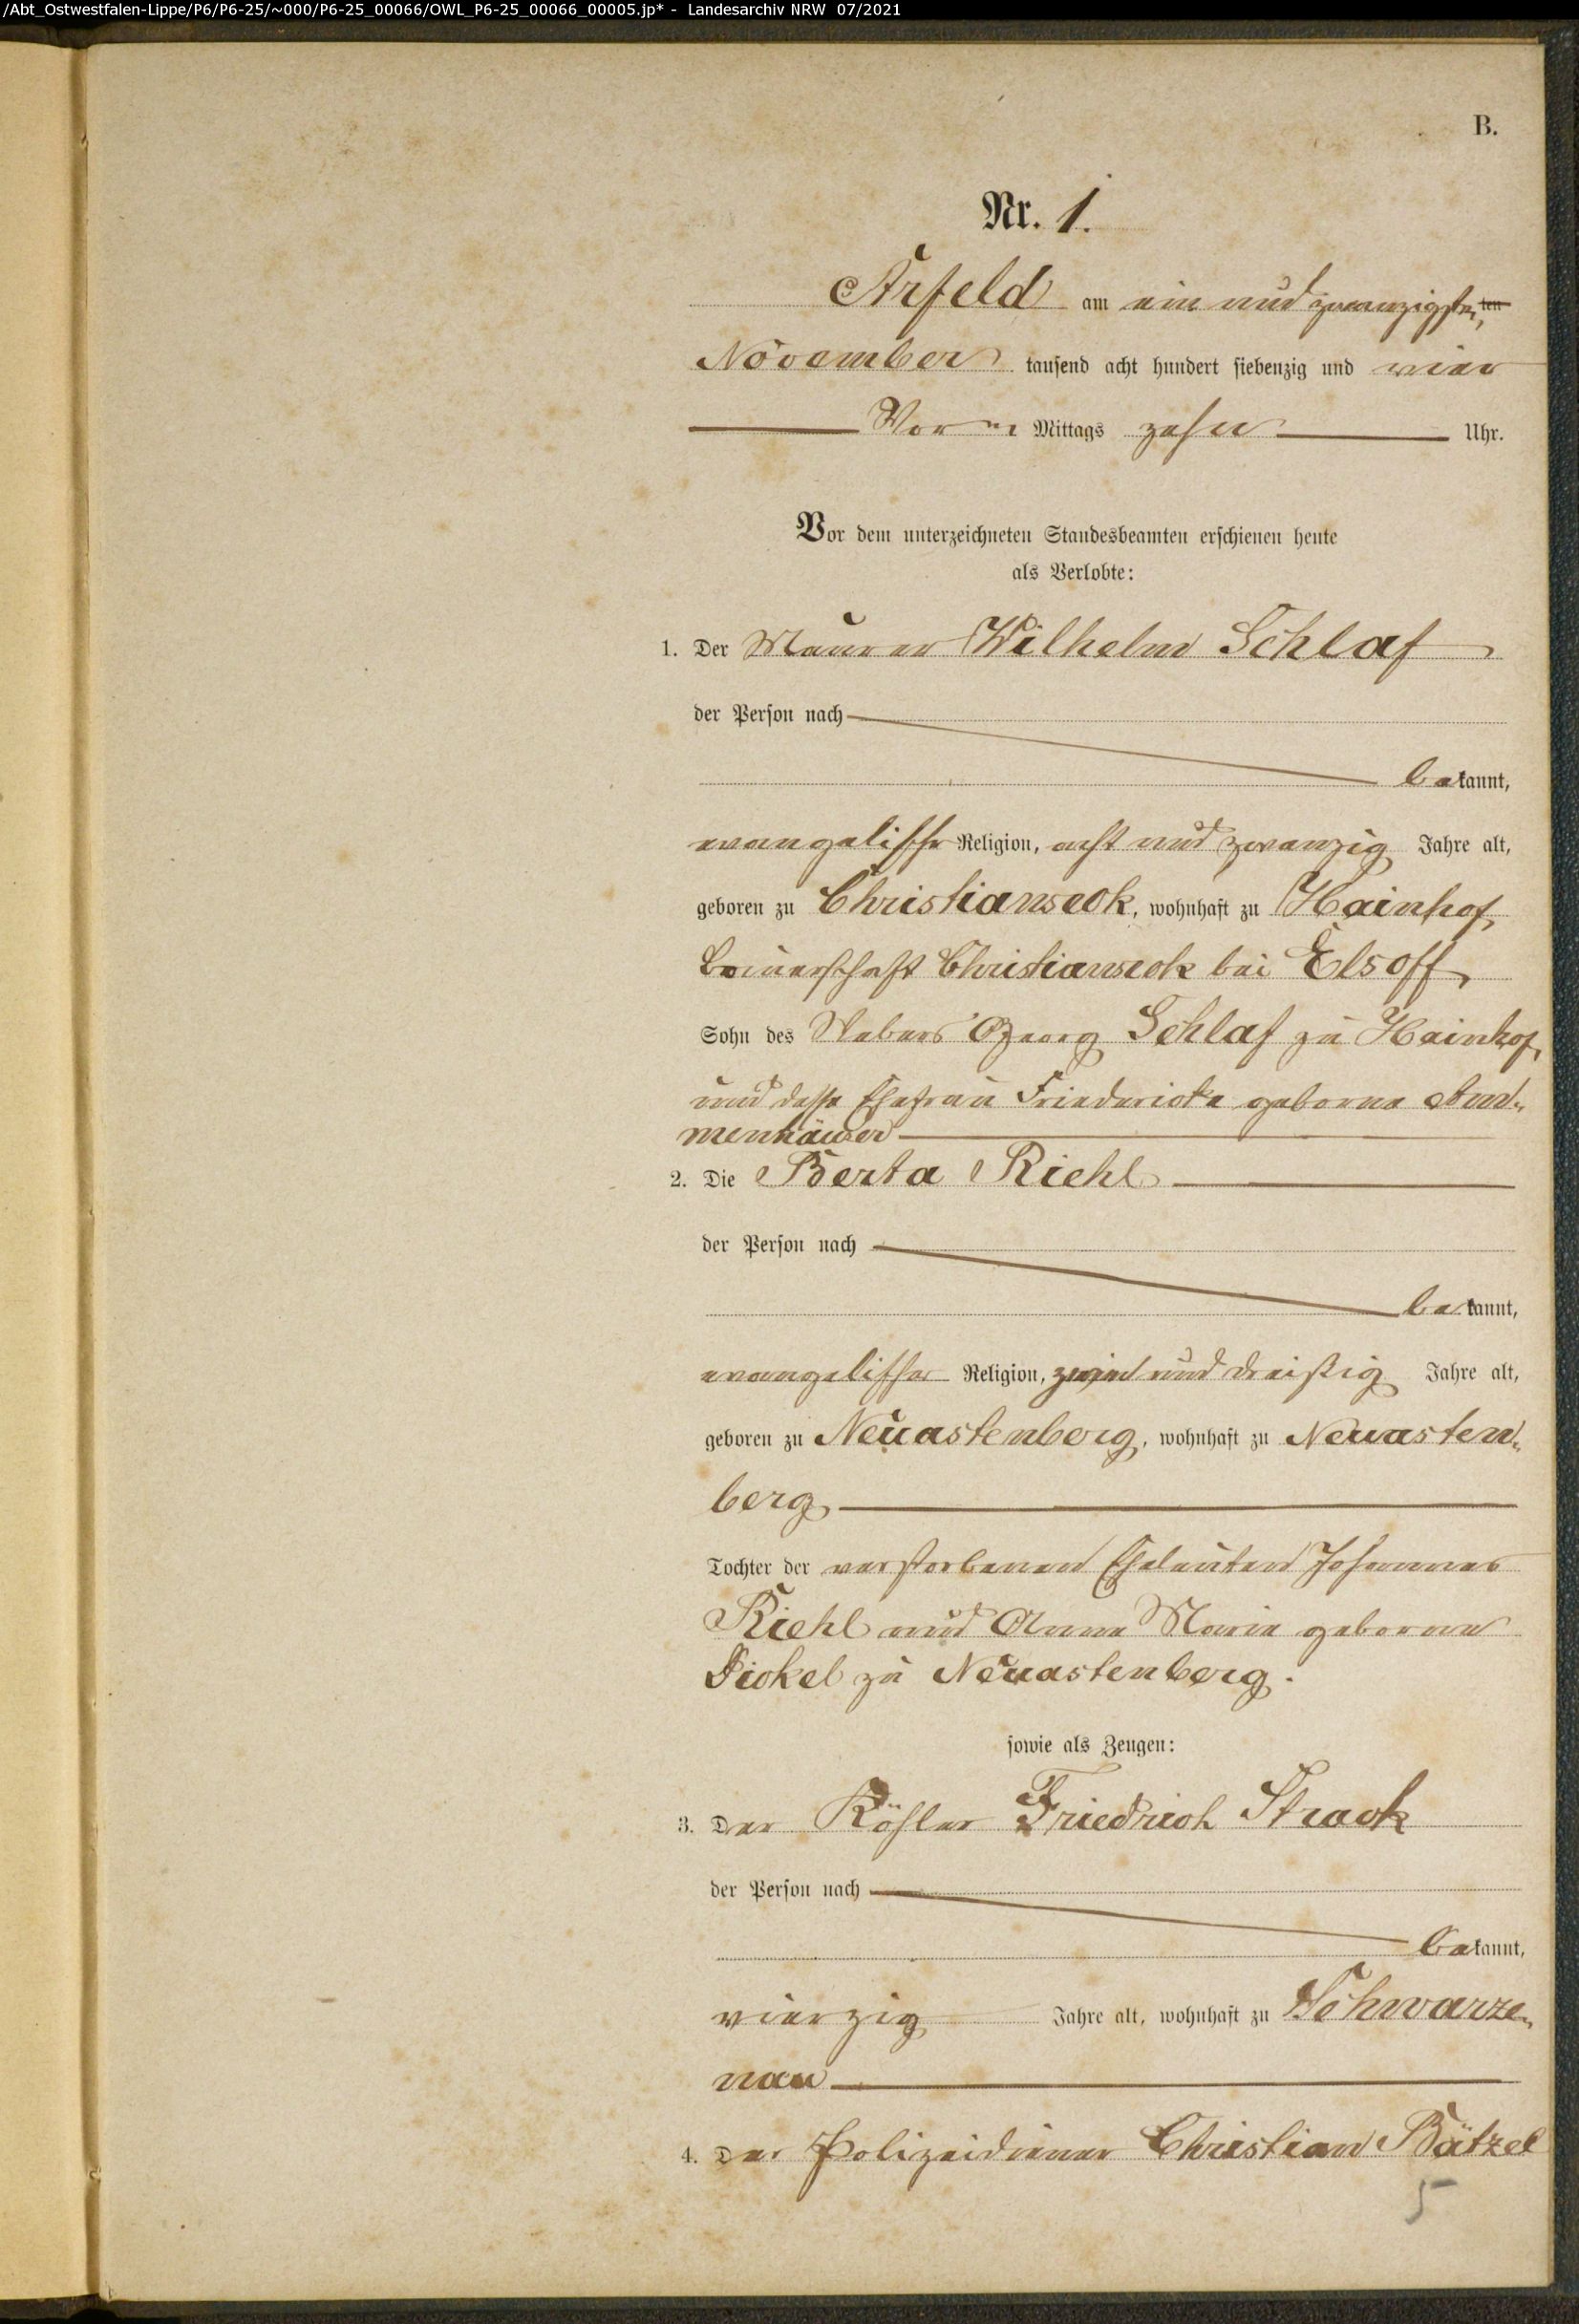 /Abt_Ostwestfalen-Lippe/P6/P6-25/~000/P6-25_00066/OWL_P6-25_00066_00005.jp* - Landesarchiv NRW 07/2021
B.
Nr. 1.
Arfeld am ein und zwanzigsten ten
November tausend acht hundert siebenzig und vier
Vor Mittags zehn Uhr.
Vor dem unterzeichneten Standesbeamten erschienen heute
als Verlobte:
1. Der Maurer Wilhelm Schlaf
der Person nach
bekannt,
evangelischer Religion, acht und zwanzig Jahre alt,
geboren zu Christianseck, wohnhaft zu Hainhof,
Bauerschaft Christianseck bei Elsoff,
Sohn des Webers Georg Schlaf zu Hainhof,
und dessen Ehefrau Friedericke geborne
menhäuser
2. Die Berta Riehl
der Person nach
bekannt,
evangelischer Religion, und dreißig Jahre alt,
geboren zu Neuastenberg, wohnhaft zu Neuasten-
berg,
Tochter der verstorbenen Eheleuten Johannes
Riehl und Anna Marie geborene
Dickel zu Neuastenberg.
sowie als Zeugen:
3. Der Köhler Friedrich Strack
der Person nach
bekannt,
vierzig Jahre alt, wohnhaft zu Schwarze-
nau
4. Der Polizeidiener Christian Bätzel
5